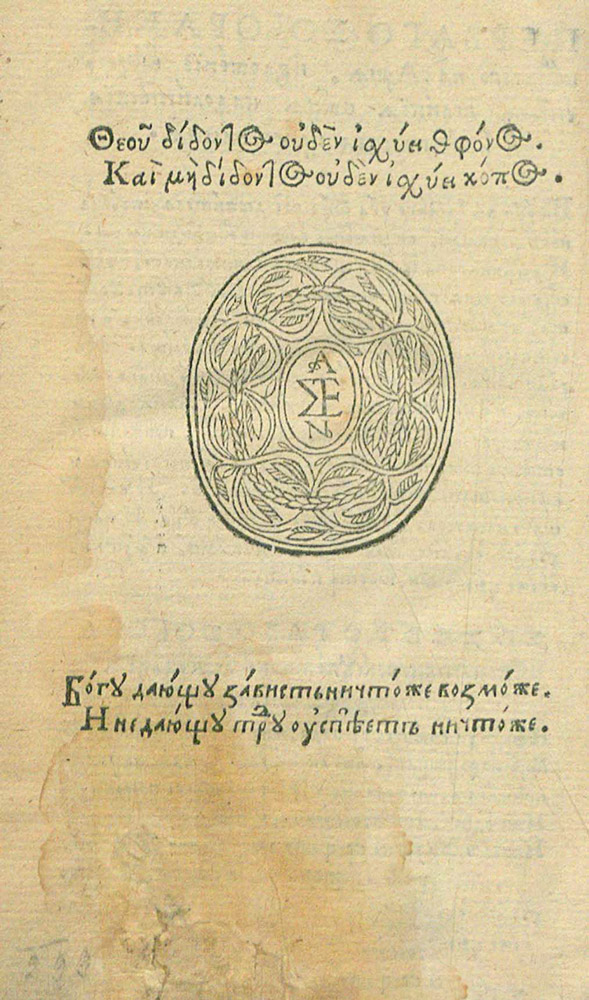 Θεοῦ δίδοντος οὐδὲν ἰσχύει φθόνος.
Καὶ μὴ δίδοντος οὐδὲν ἰσχύει κόπος.
Α
ΣΕ
Ν
Бо́гу даю́щꙋ за́висть ничто́же возмо́же.
И не даю́щꙋ трꙋ̀ ᲂу҆спѣ́етъ ничто́же.